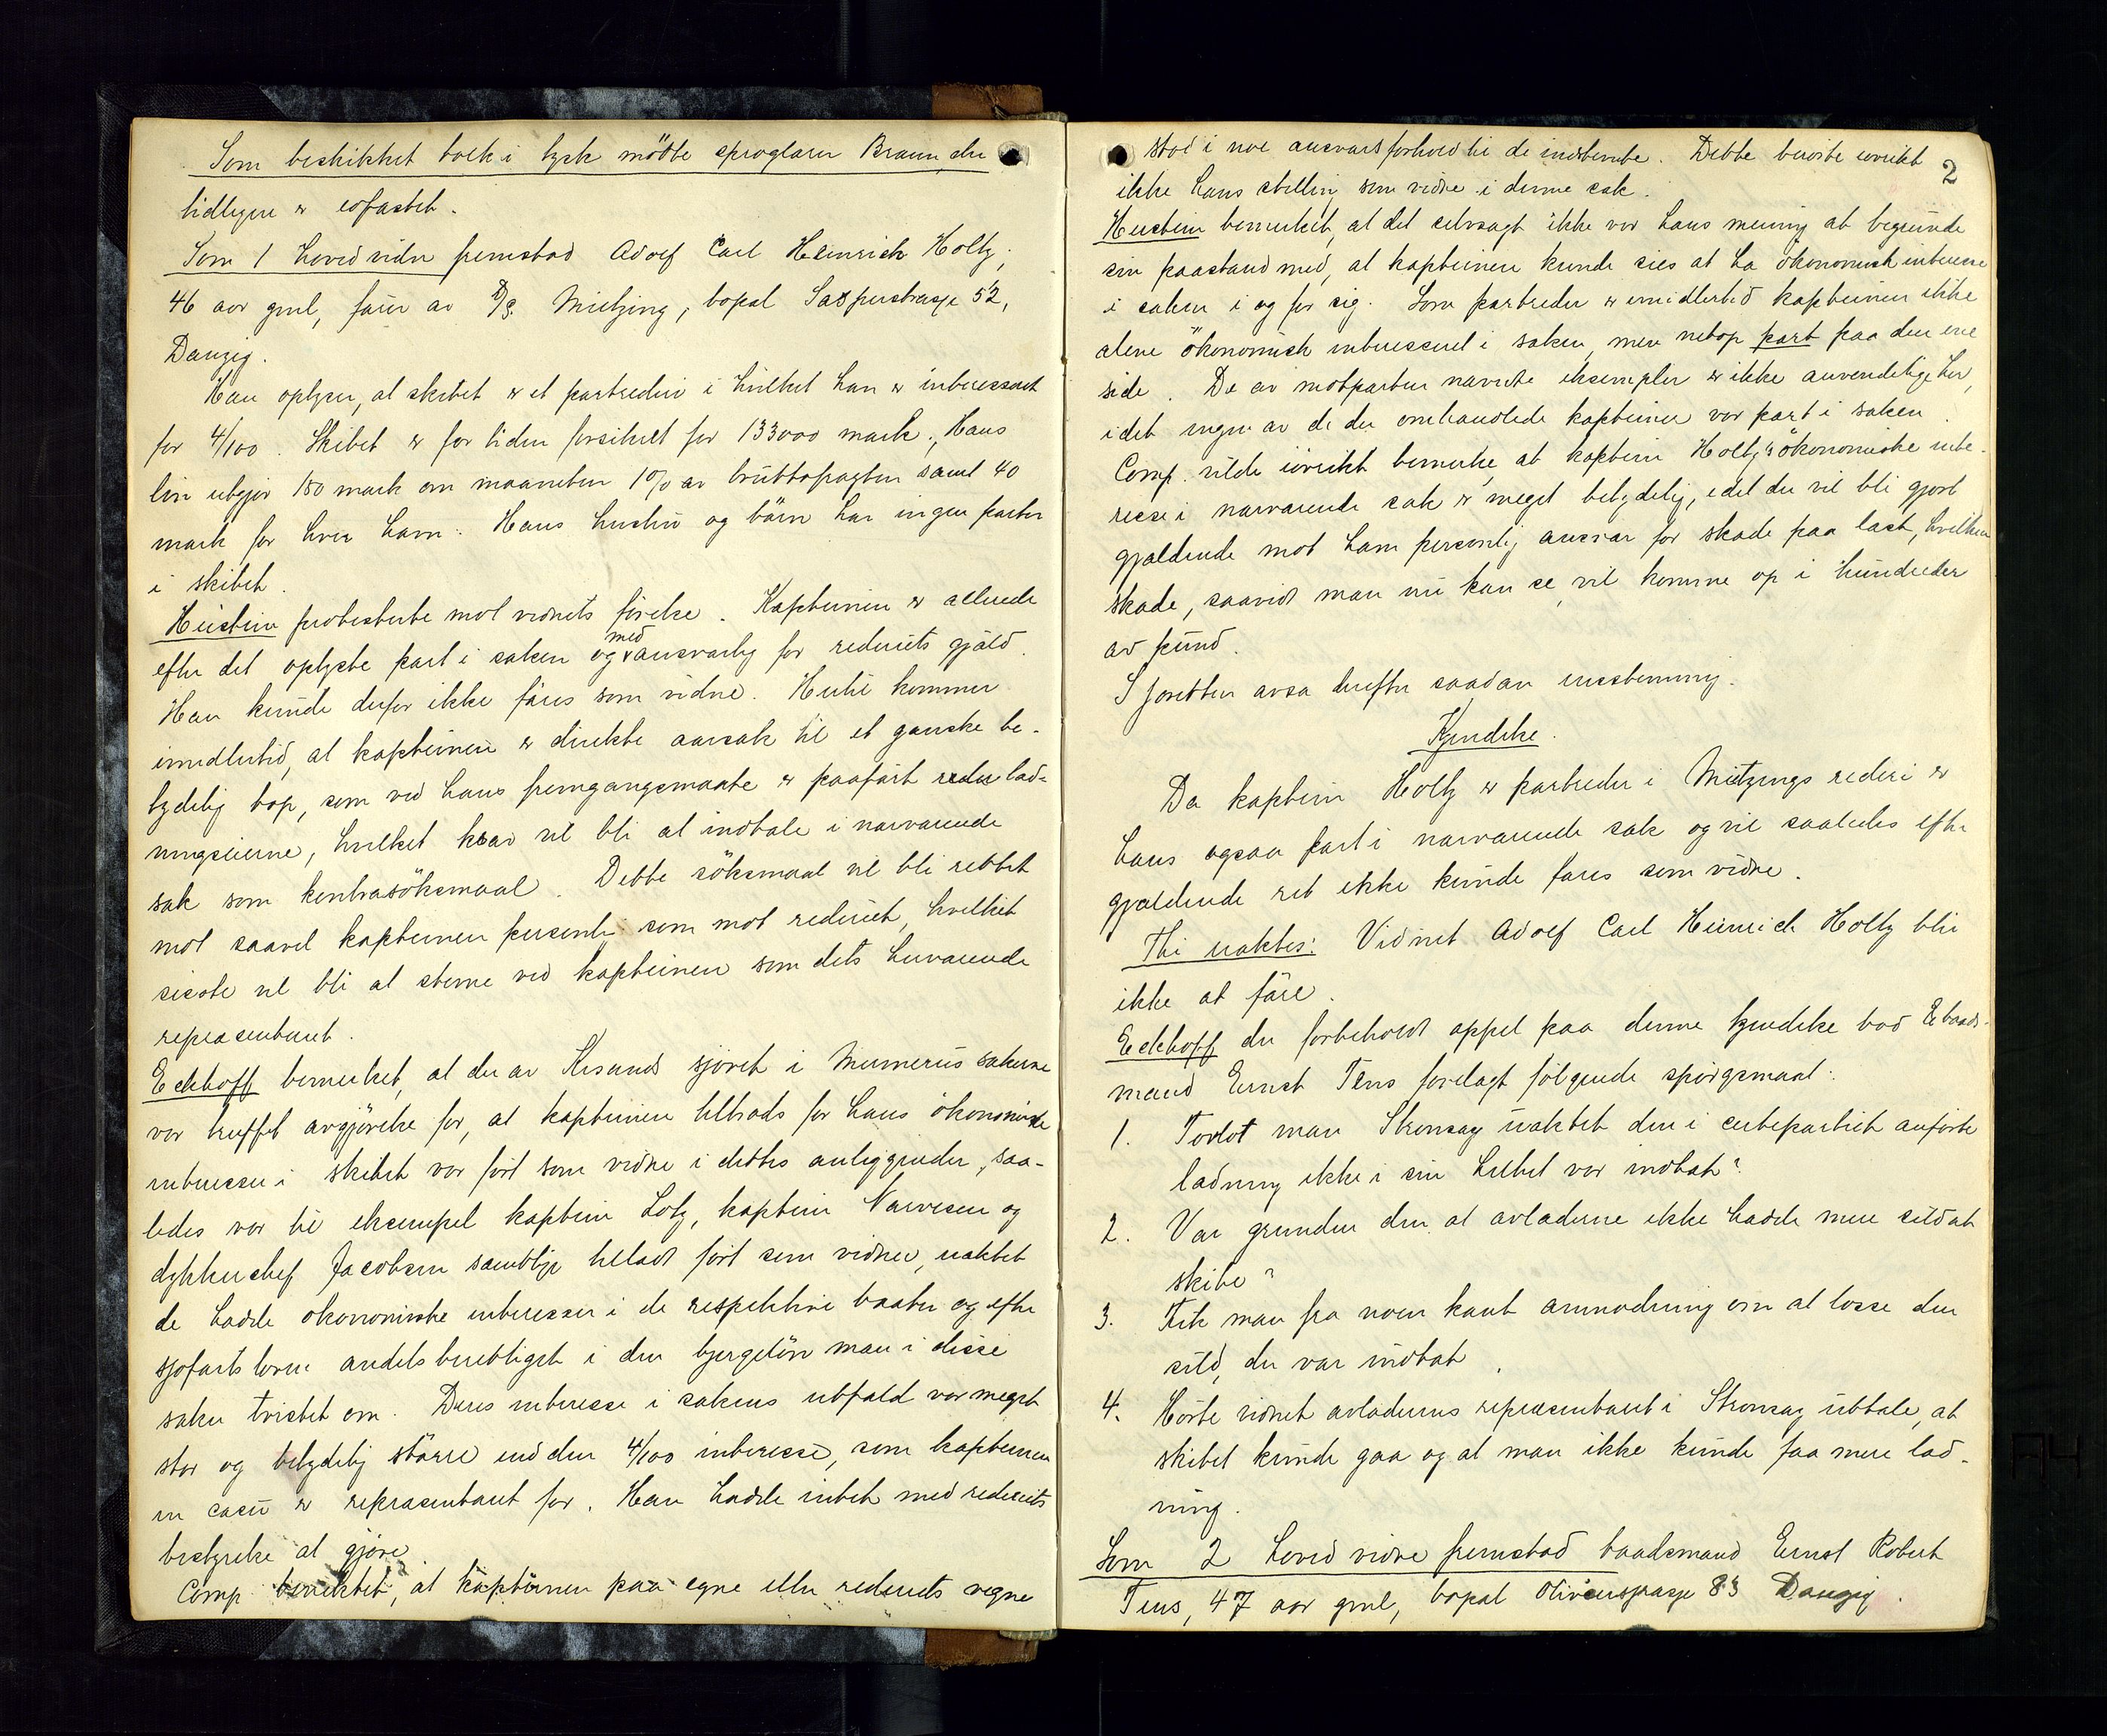 Som beskikket tolk i tysk mötte sproglærer Braun, der
tidligere er edfæstet.
Som 1 hovedvidne fremstod Adolf Carl Heinrich Holtz,
46 aar gml, förer av D/S. Mietzing, bopæl Sasperstrasse 52,
Danzig.
Han oplyser, at skibet er et partrederi i hvilket han er interessert
for 4/100. Skibet er for tiden forsikret for 133000 mark. Hans
lön utgjör 150 mark om maaneden 1% av bruttofragten samt 40
mark for hver havn. Hans hustru og börn har ingen parter
i skibet.
Heistein protesterte mot vidnets förelse. Kapteinen er allerede
efter det oplyste part i saken og medansvarlig for rederiets gjæld.
Han kunde derfor ikke föres som vidne. Hertil kommer
imidlertid, at kapteinen er direkte aarsak til et ganske be-
tydelig tap, som ved hans fremgangsmaate er paafört lad-
ningseierne, hvilket krav vil bli at indtale i nærværende
sak som kontrasöksmaal. Dette söksmaal vil bli rettet
mot saavel kapteinen personlig som mot rederiet, hvilket
sidste vil bli at stevne ved kapteinen som dets herværende
representant.
Eckhoff bemerket, at der av Krsands sjöret i Minnerus sakerne
var truffet avgjörelse for, at kapteinen tiltrods for hans ökonomiske
interesser i skibet var fört som vidne i dettes anliggender, saa-
ledes var til eksempel kaptein Lotz, kaptein Narvesen og
dykkerchef Jacobsen samtlige tilladt fört som vidner, uaktet
de hadde økonomiske interesser i de respektive baater og efter
sjøfartsloven andelsberettiget i den bjergelön man i disse
saker tvistet om. Deres interesse i sakens utfald var meget
stor og betydelig större end den 4/100 interesse, som kapteinen
in casu er representant for. Han hadde intet med rederiets
bestyrelse at gjöre.
Comp. benektet, at kapteinen paa egne eller rederiets vegne
2
stod i noe ansvarsforhold til de indstevnte. Dette berörte iövrikt
ikke hans stilling som vidne i denne sak.
Heistein bemerket, at det selvsagt ikke var hans mening at begrunde
sin paastand med, at kapteinen kunde sies at ha ökonomisk interesse
i saken i og for sig. Som partreder er imidlertid kapteinen ikke
alene ökonomisk interessert i saken, men netop part paa den ene
side. De av motparten nævnte eksempler er ikke anvendelige her,
idet ingen av de der omhandlede kapteiner var part i saken
Comp. vilde iövrikt bemerke, at kaptein Holtz's ökonomiske inte-
resse i nærværende sak er meget betydelig, idet der vil bli gjort
gjældende mot ham personlig ansvar for skade paa last, hvilken
skade, saavidt man nu kan se, vil komme op i hundreder
av pund.
Sjøretten avsa derefter saadan enstemmig.
Kjendelse.
Da kaptein Holtz er partreder i Mietzings rederi er
hans ogsaa part i nærværende sak og vil saaledes efter
gjældende ret ikke kunde föres som vidne.
Thi eraktes: Vidnet Adolf Carl Heinrich Holtz blir
ikke at före.
Eckhoff der forbeholdt appel paa denne kjendelse bad baads-
mand Ernst Tens forelagt fölgende spörgsmaal:
1. Forlot man Stronsay uaktet den i certepartiet anförte
ladning ikke i sin helhet var indtat?
2. Var grunden den at avladerne ikke hadde mere sild at
skibe?
3. Fik man fra noen kant anmodning om at losse den
sild, der var indtat.
4. Hörte vidnet avladerens representant i Stronsay uttale, at
skibet kunde gaa og at man ikke kunde faa mere lad-
ning.
Som 2 hovedvidne fremstod baadsmand Ernst Robert
Tens, 47 aar gml, bopæl Olivaerstrasse 83 Danzig.